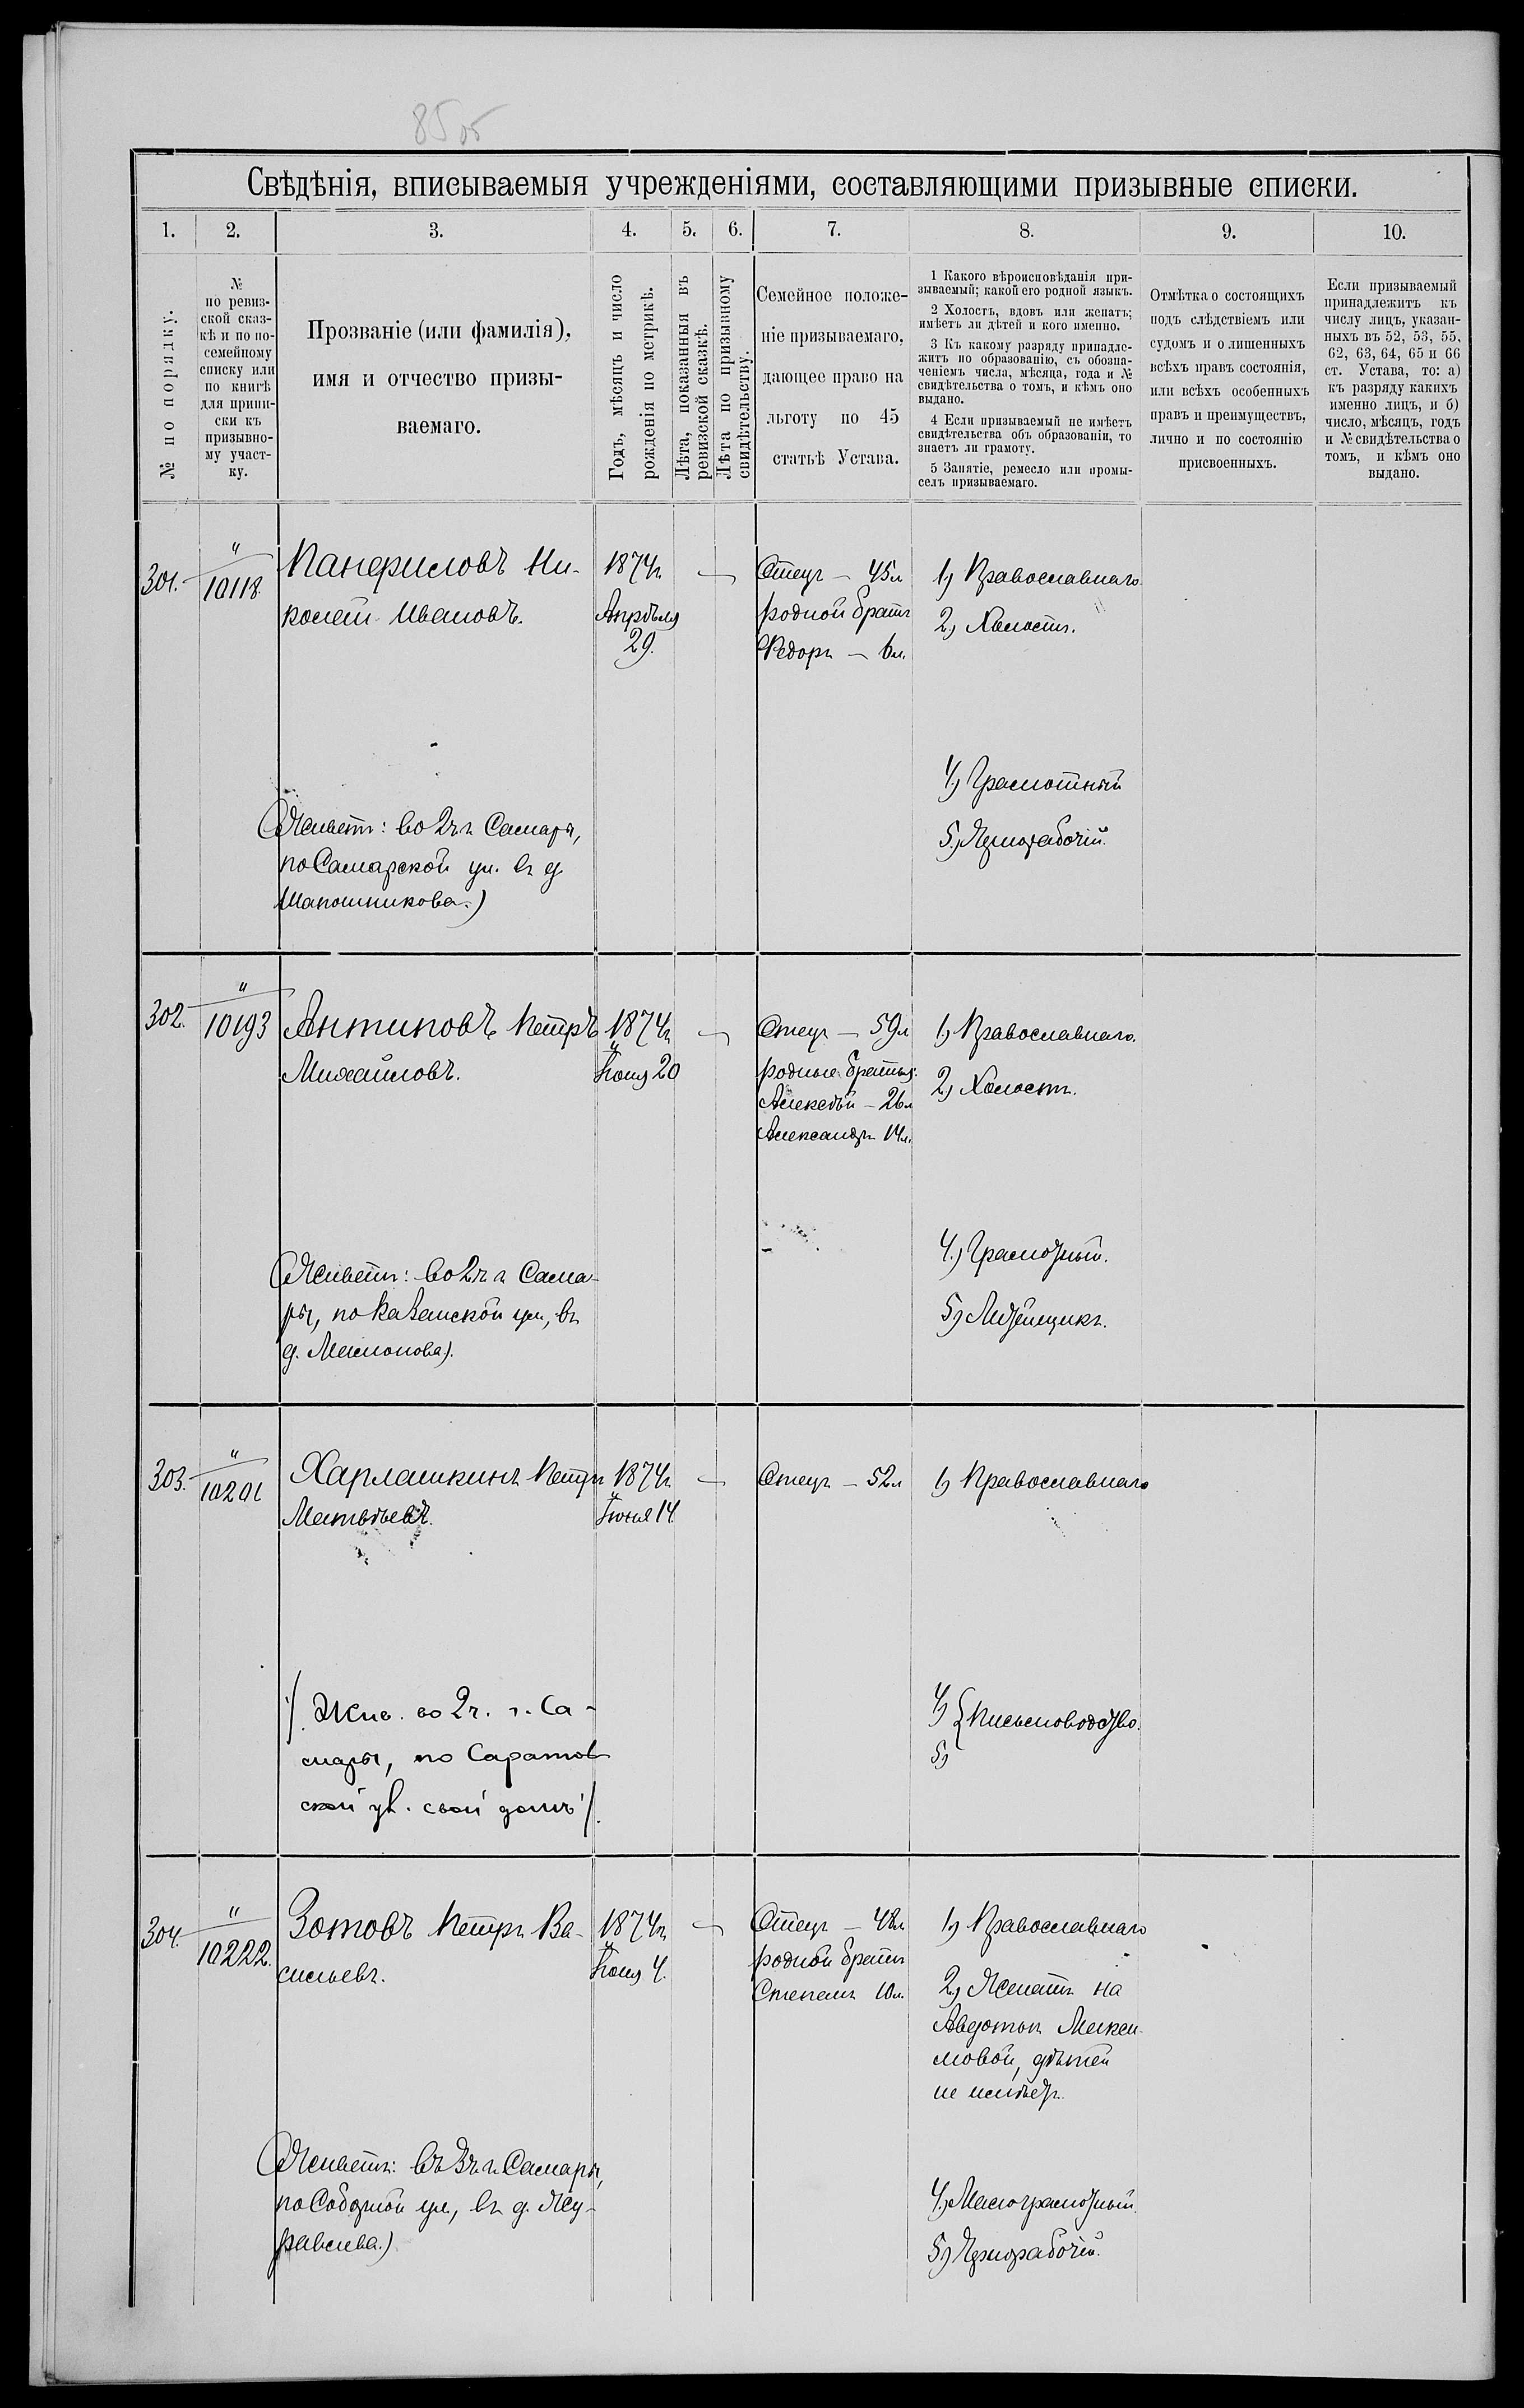 85об
Свѣдѣнія, вписываемыя учрежденіями, составляющими призывные списки.
1. 2. 3. 4. 5. 6. 7. 8. 9. 10.
№ по порядку.
№
по ревиз-
ской сказ-
кѣ и по по-
семейному
списку или
по книгѣ
для припи-
ски къ
призывно-
му участ-
ку.
Прозваніе (или фамилія),
имя и отчество призы-
ваемаго.
Годъ, мѣсяцъ и число
рожденія по метрикѣ.
Лѣта, показанныя въ
ревизской сказкѣ.
Лѣта по призывному
свидѣтельству.
Семейное положе-
ніе призываемаго,
дающее право на
льготу по 45
статьѣ Устава.
1 Какого вѣроисповѣданія при-
зываемый; какой его родной языкъ.
2 Холостъ, вдовъ или женатъ;
имѣетъ ли дѣтей и кого именно.
3 Къ какому разряду принадле-
житъ по образованію, съ обозна-
ченіемъ числа, мѣсяца, года и №
свидѣтельства о томъ, и кѣмъ оно
выдано.
4 Если призываемый не имѣетъ
свидѣтельства объ образованіи, то
знаетъ ли грамоту.
5 Занятіе, ремесло или промы-
селъ призываемаго.
Отмѣтка о состоящихъ
подъ слѣдствіемъ или
судомъ и о лишенныхъ
всѣхъ правъ состоянія,
или всѣхъ особенныхъ
правъ и преимуществъ,
лично и по состоянію
присвоенныхъ.
Если призываемый
принадлежитъ къ
числу лицъ, указан-
ныхъ въ 52, 53, 55,
62, 63, 64, 65 и 66
ст. Устава, то: а)
къ разряду какихъ
именно лицъ, и б)
число, мѣсяцъ, годъ
и № свидѣтельства о
томъ, и кѣмъ оно
выдано.
301.
"
10118.
Панфиловъ Ни-
колай Ивановъ.
1874г.
Апрѣля
29.
—
Отецъ — 45л
родной братъ
Ѳедоръ — 6л.
1) Православнаго
2) Холостъ.
4) Грамотный
5) Чернорабочій.
(Живетъ: во 2 ч. г. Самары,
по Самарской ул. въ д.
Шапошникова.)
302.
"
10193
Антиповъ Петръ
Михайловъ.
1874г.
Іюня 20
—
Отецъ — 59л
родные братья:
Алексѣй — 26л
Александръ 14л.
1) Православнаго.
2) Холостъ.
4) Грамотный.
5) Литейщикъ.
(Живетъ: во 2 ч. г. Сама-
ры, по Казанской ул., въ
д. Маслова).
303.
"
10201
Харлашкинъ Петръ
Матвѣевъ.
1874г.
Іюня 14.
—
Отецъ — 52л
1) Православнаго
4)
5) { Письмоводство.
/Жив. во 2 ч. г. Са-
мары, по Саратов-
ской ул. свой домъ/.
304.
"
10222.
Зотовъ Петръ Ва-
сильевъ.
1874г.
Іюня 4.
—
Отецъ — 48л
родной братъ
Степанъ 10л.
1) Православнаго
2) Женатъ на
Авдотьи Макси-
мовой, дѣтей
не имѣетъ.
4) Малограмотный.
5) Чернорабочій.
(Живетъ: въ 3 ч. г. Самары,
по Соборной ул., въ д. Жу-
равлева.)